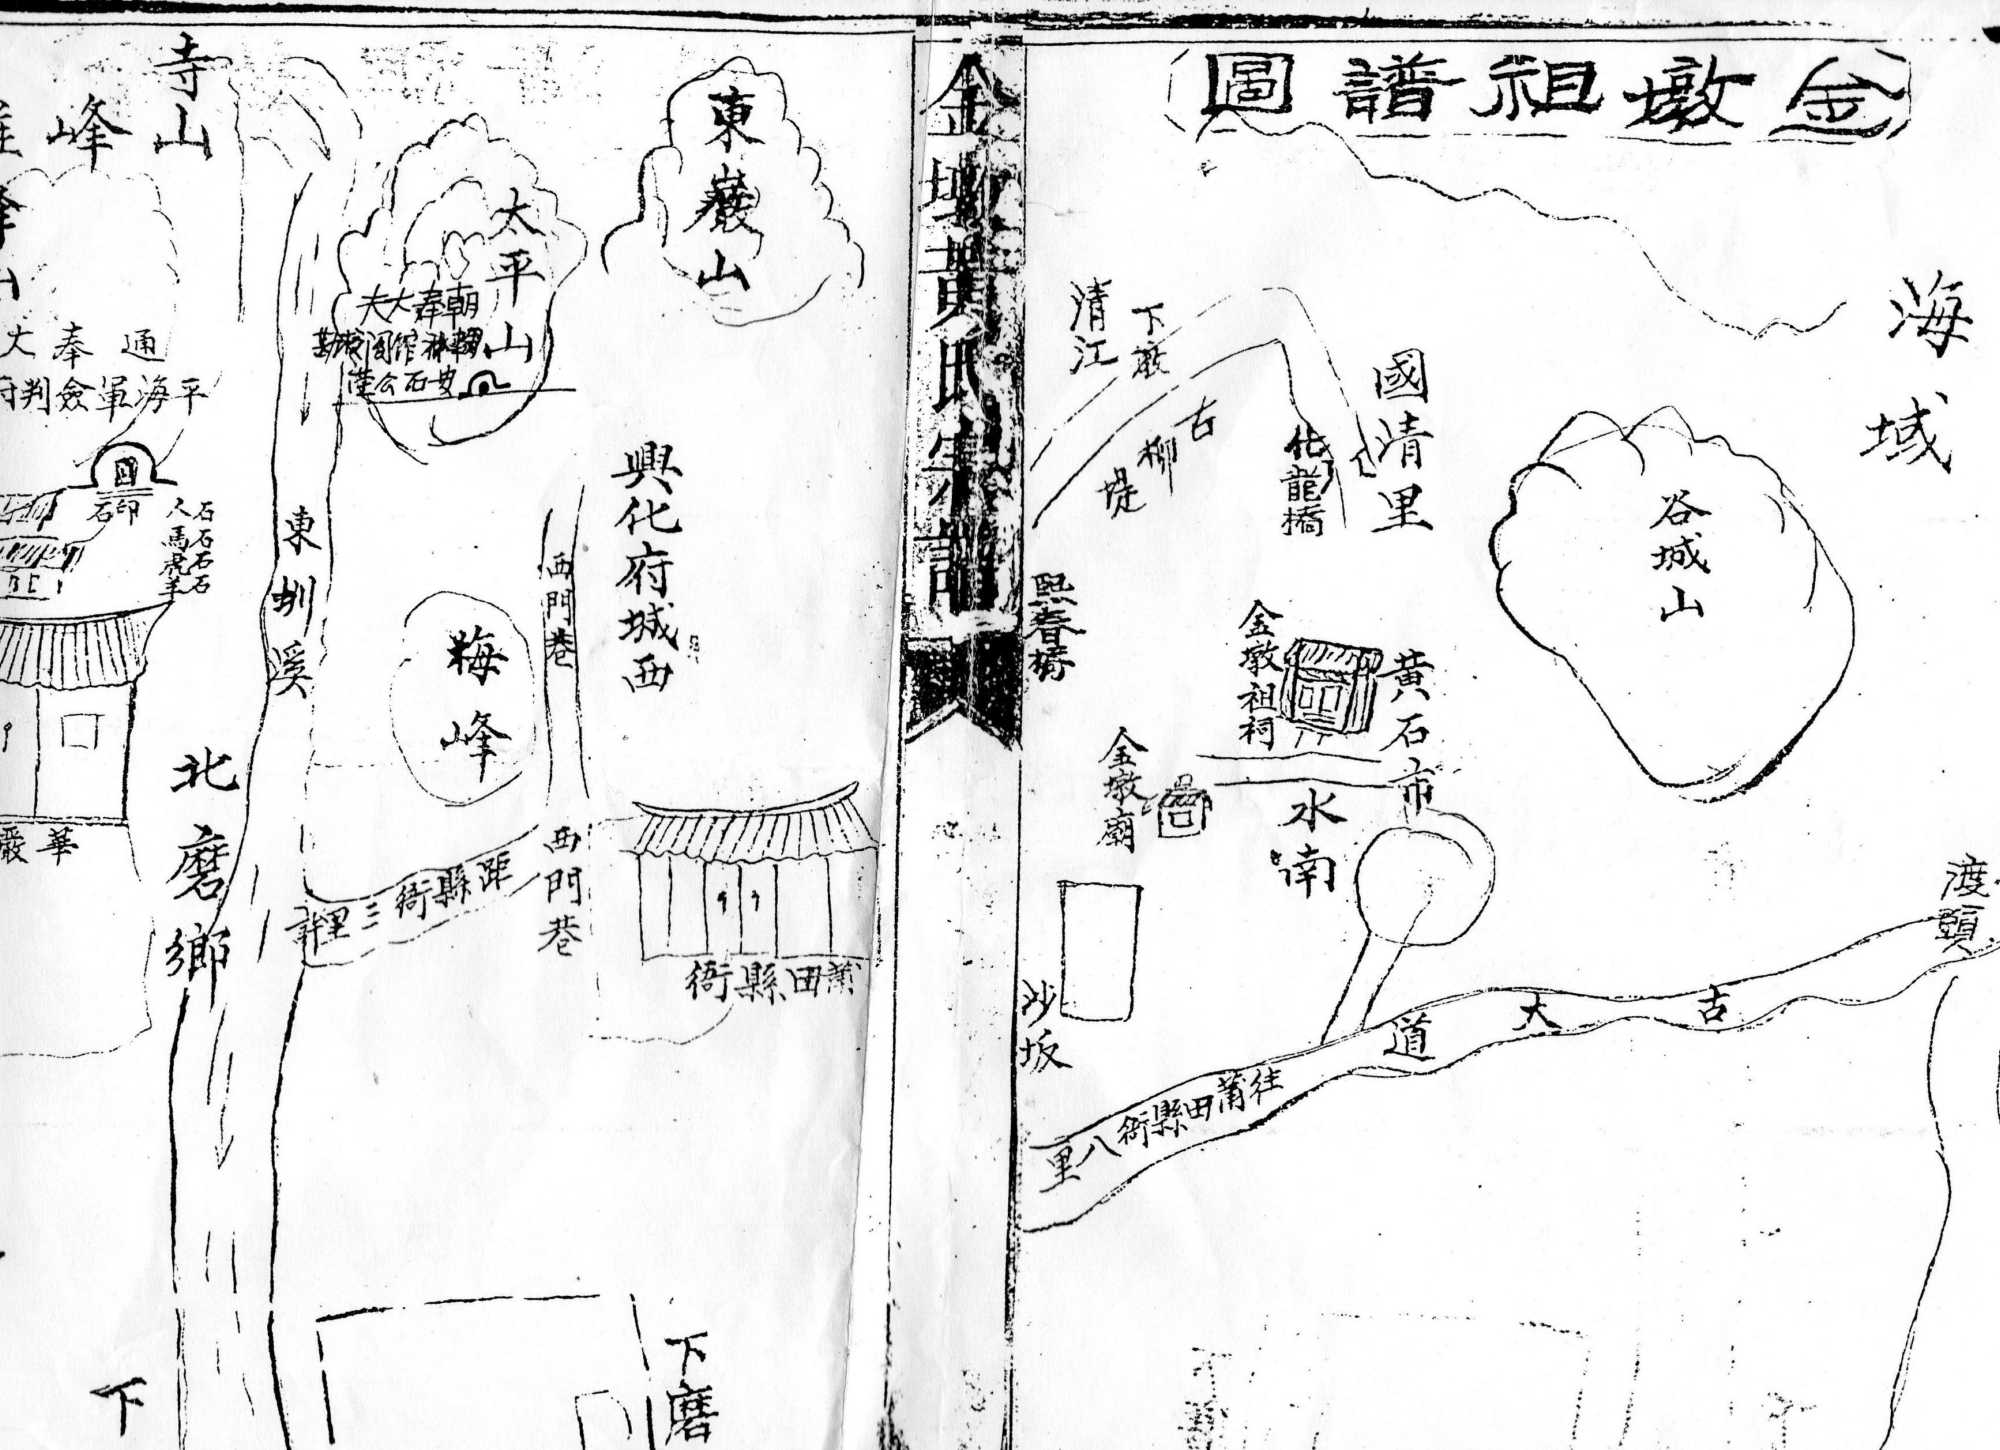 金墩祖譜圖
海域
谷城山
渡頭
國清里
化龍橋
下墩
清江
古柳堤
熙春橋
金墩祖祠
黃石市
水南
金墩廟
沙坂
古大道
往莆田縣衙八里
金墩黃氏宗譜
東巖山
太平山
朝奉大夫
安石公塋
興化府城西
西門巷
西門巷
梅峰
莆田縣衙
距縣衙三里許
下磨
東圳溪
北磨鄉
寺山
峰
通奉
平海軍僉判
印石
石人
石馬
石虎
石羊
華嚴
下